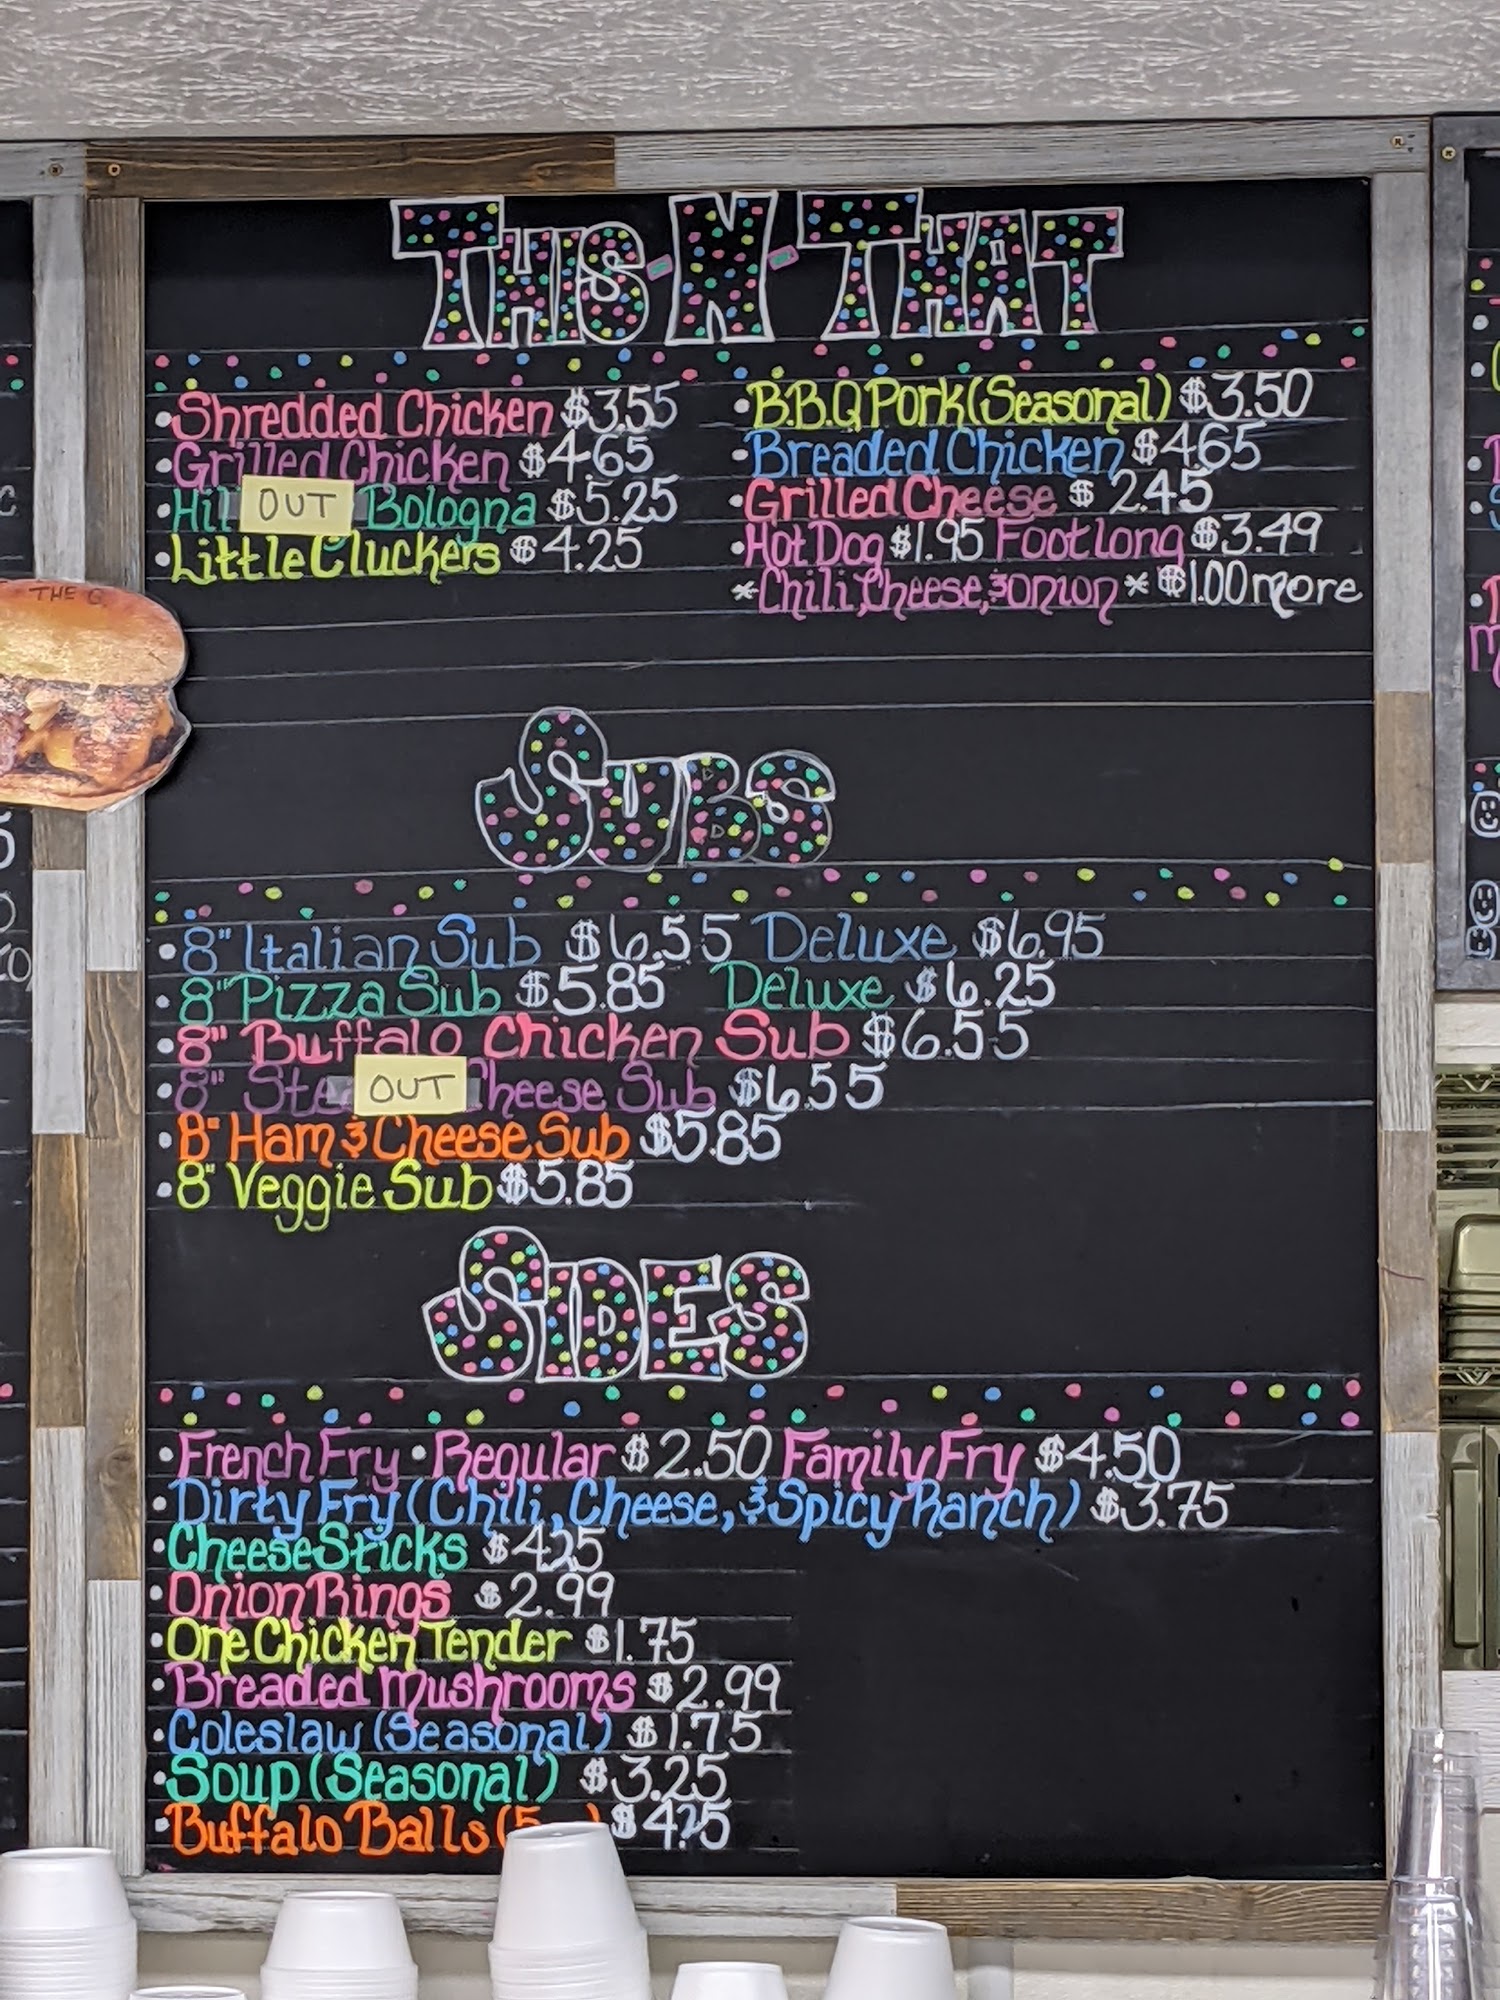 THIS-N-THAT
•Shredded Chicken $3.55
•Grilled Chicken $4.65
OUT Bologna $5.25
•Little Cluckers $4.25
•B.B.Q Pork (Seasonal) $3.50
•Breaded Chicken $4.65
•Grilled Cheese $2.45
•Hot Dog $1.95 Footlong $3.49
*Chili, Cheese, & Onion * $1.00 more
THE G
SUBS
•8" Italian Sub $6.55 Deluxe $6.95
•8" Pizza Sub $5.85 Deluxe $6.25
•8" Buffalo Chicken Sub $6.55
•8" OUT Cheese Sub $6.55
•8" Ham & Cheese Sub $5.85
•8" Veggie Sub $5.85
SIDES
•French Fry • Regular $2.50 Family Fry $4.50
•Dirty Fry (Chili, Cheese, & Spicy Ranch) $3.75
•Cheese Sticks $4.25
•Onion Rings $2.99
•One Chicken Tender $1.75
•Breaded Mushrooms $2.99
•Coleslaw (Seasonal) $1.75
•Soup (Seasonal) $3.25
•Buffalo Balls $4.25